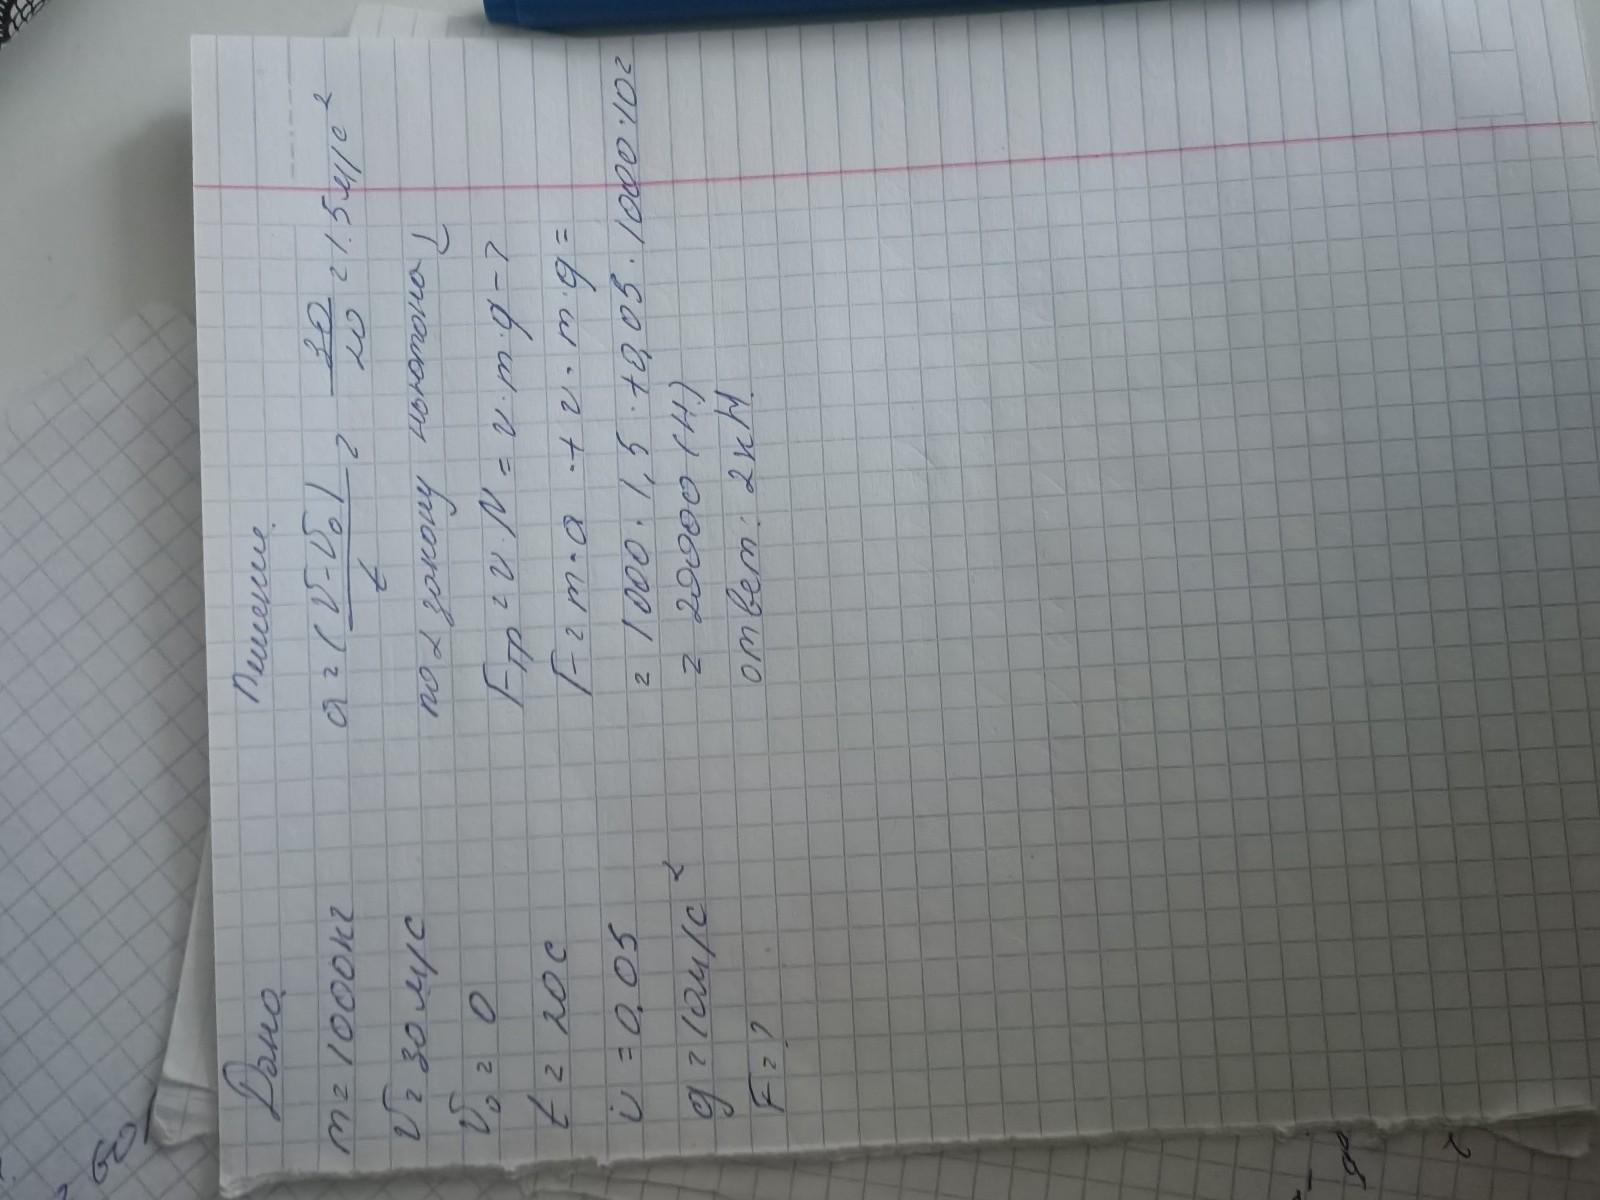 Дано
m = 1000кг
V = 30 м/с
V₀ = 0
t = 20 с
u = 0,05
g = 10м/с²
F = ?
Решение.
a = (V - V₀) / t = 30 / 20 = 1.5 м/с²
по 2 закону ньютона
Fтр = u · N = u · m · g →
F = m · a + u · m · g =
= 1000 · 1,5 · + 0,05 · 1000 · 10 =
= 20000 (Н)
ответ: 2кН.